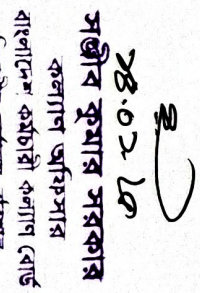 ২৪.০২.২৫
সঞ্জীব কুমার সরকার
কল্যাণ অফিসার
বাংলাদেশ কর্মচারী কল্যাণ বোর্ড